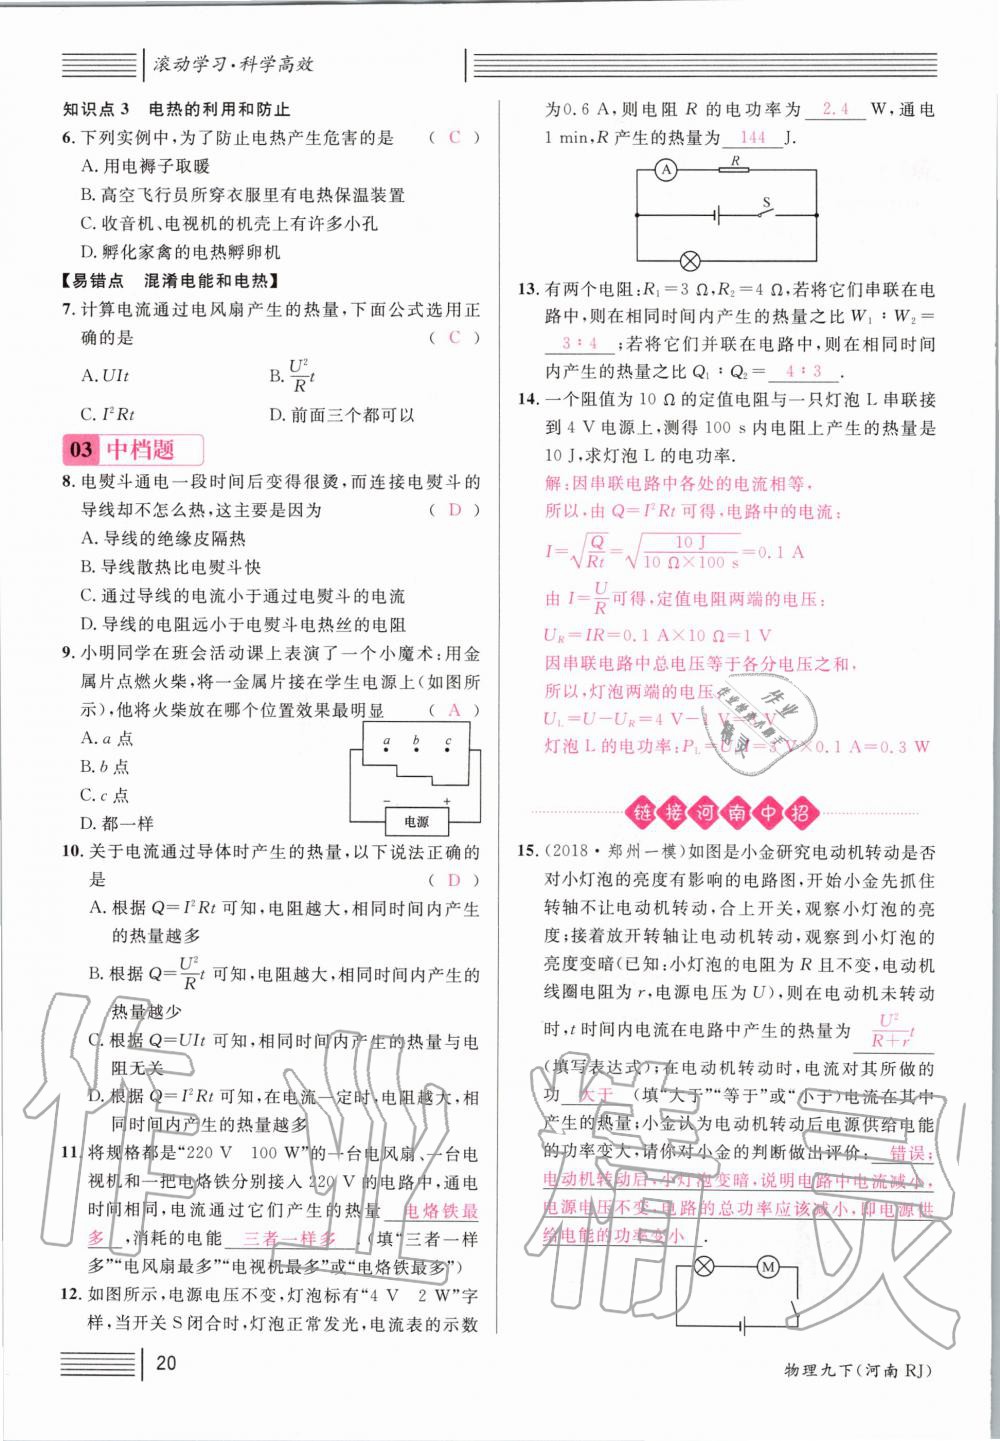 滚动学习·科学高效
知识点 3 电热的利用和防止
6. 下列实例中,为了防止电热产生危害的是 ( C )
A. 用电褥子取暖
B. 高空飞行员所穿衣服里有电热保温装置
C. 收音机、电视机的机壳上有许多小孔
D. 孵化家禽的电热孵卵机
【易错点 混淆电能和电热】
7. 计算电流通过电风扇产生的热量,下面公式选用正
确的是 ( C )
A. UIt B. U²/R t
C. I²Rt D. 前面三个都可以
03 中档题
8. 电熨斗通电一段时间后变得很烫,而连接电熨斗的
导线却不怎么热,这主要是因为 ( D )
A. 导线的绝缘皮隔热
B. 导线散热比电熨斗快
C. 通过导线的电流小于通过电熨斗的电流
D. 导线的电阻远小于电熨斗电热丝的电阻
9. 小明同学在班会活动课上表演了一个小魔术:用金
属片点燃火柴,将一金属片接在学生电源上(如图所
示),他将火柴放在哪个位置效果最明显 ( A )
A. a 点
B. b 点
C. c 点
D. 都一样
a b c
− +
电源
10. 关于电流通过导体时产生的热量,以下说法正确的
是 ( D )
A. 根据 Q=I²Rt 可知,电阻越大,相同时间内产生
的热量越多
B. 根据 Q=U²/R t 可知,电阻越大,相同时间内产生的
热量越少
C. 根据 Q=UIt 可知,相同时间内产生的热量与电
阻无关
D. 根据 Q=I²Rt 可知,在电流一定时,电阻越大,相
同时间内产生的热量越多
11. 将规格都是“220 V 100 W”的一台电风扇、一台电
视机和一把电烙铁分别接入 220 V 的电路中,通电
时间相同,电流通过它们产生的热量 电烙铁最
多 ,消耗的电能 三者一样多 .(填“三者一样
多”“电风扇最多”“电视机最多”或“电烙铁最多”)
12. 如图所示,电源电压不变,灯泡标有“4 V 2 W”字
样,当开关 S 闭合时,灯泡正常发光,电流表的示数
为0.6 A,则电阻 R 的电功率为 2.4 W,通电
1 min,R 产生的热量为 144 J.
A R
S
13. 有两个电阻:R₁=3 Ω,R₂=4 Ω,若将它们串联在电
路中,则在相同时间内产生的热量之比 W₁∶W₂=
3∶4 ;若将它们并联在电路中,则在相同时间
内产生的热量之比 Q₁∶Q₂= 4∶3 .
14. 一个阻值为 10 Ω 的定值电阻与一只灯泡 L 串联接
到 4 V 电源上,测得 100 s 内电阻上产生的热量是
10 J,求灯泡 L 的电功率.
解:因串联电路中各处的电流相等,
所以,由 Q=I²Rt 可得,电路中的电流:
I=√(Q/Rt)=√(10 J/10 Ω×100 s)=0.1 A
由 I=U/R可得,定值电阻两端的电压:
U_R=IR=0.1 A×10 Ω=1 V
因串联电路中总电压等于各分电压之和,
所以,灯泡两端的电压
U_L=U−U_R=4 V−1 V=3 V
灯泡 L 的电功率:P_L=U_LI=3 V×0.1 A=0.3 W
链接河南中招
15. (2018·郑州一模)如图是小金研究电动机转动是否
对小灯泡的亮度有影响的电路图,开始小金先抓住
转轴不让电动机转动,合上开关,观察小灯泡的亮
度;接着放开转轴让电动机转动,观察到小灯泡的
亮度变暗(已知:小灯泡的电阻为 R 且不变,电动机
线圈电阻为 r,电源电压为 U),则在电动机未转动
时,t 时间内电流在电路中产生的热量为 U²/R+r t
(填写表达式);在电动机转动时,电流对其所做的
功 大于 (填“大于”“等于”或“小于)电流在其中
产生的热量;小金认为电动机转动后电源供给电能
的功率变大,请你对小金的判断做出评价: 错误;
电动机转动后,小灯泡变暗,说明电路中电流减小,
电源电压不变,电路的总功率应该减小,即电源供
给电能的功率变小 .
M
20
物理九下(河南 RJ)
作业精灵